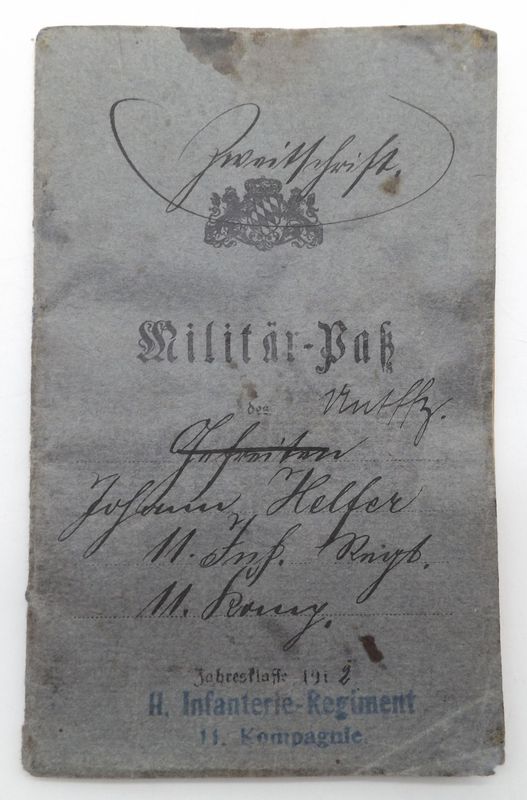 Zweitschrift.
Militär-Paß
des Untffz.
Gefreiten
Johann Helfer
11. Inf. Regt.
11. Komp.
Jahresklasse 1912
11. Infanterie-Regiment
11. Kompagnie